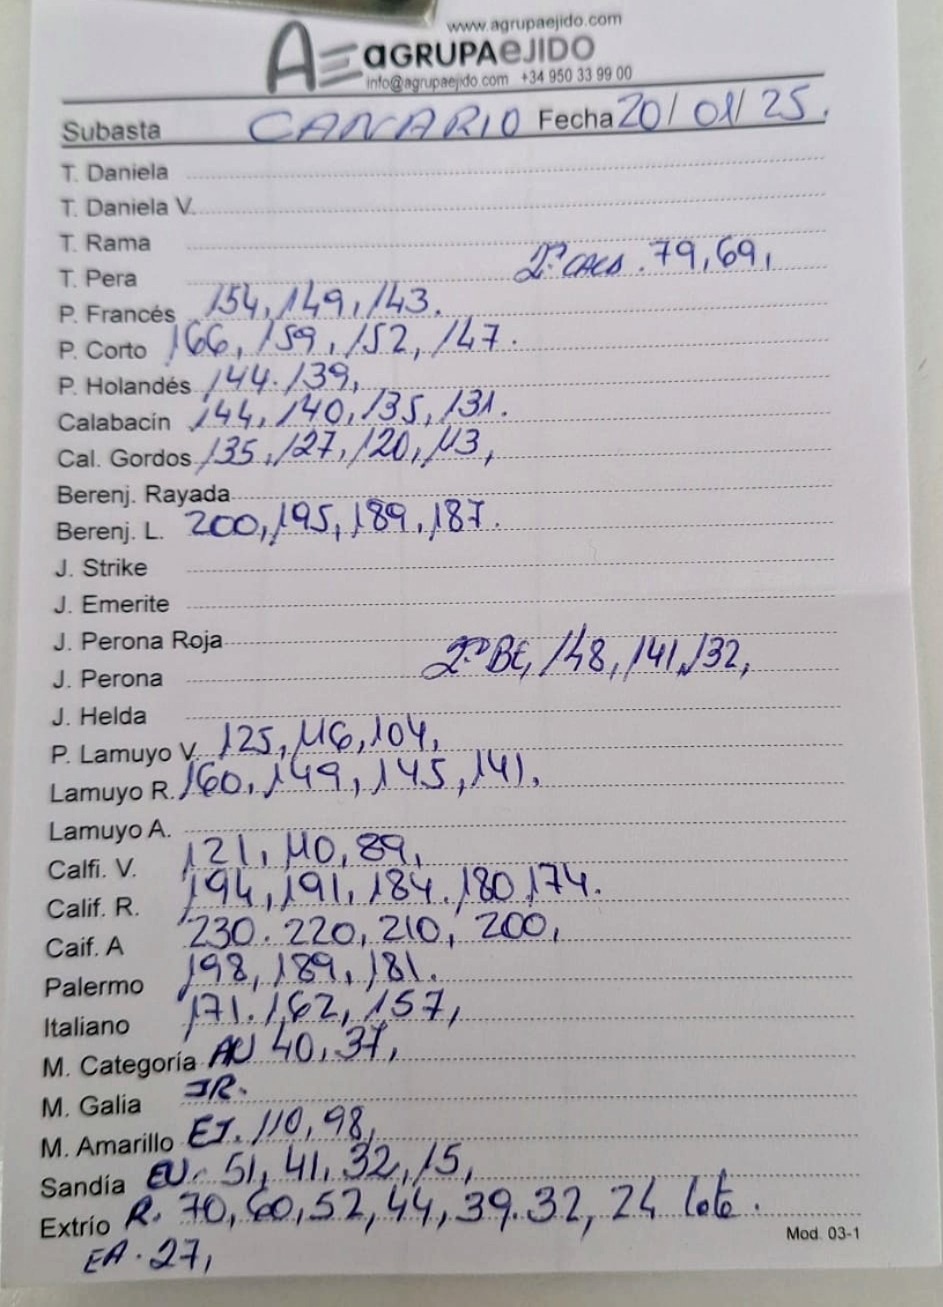 www.agrupaejido.com
AE aGRUPAeJIDO
info@agrupaejido.com +34 950 33 99 00
Subasta CANARIO Fecha 20/01/25.
T. Daniela
T. Daniela V.
T. Rama
2ª CALA. 79, 69,
T. Pera
P. Francés 154, 149, 143.
P. Corto 166, 159, 152, 147.
P. Holandés 144. 139,
Calabacín 144, 140, 135, 131.
Cal. Gordos 135, 127, 120, 113,
Berenj. Rayada
Berenj. L. 200, 195, 189, 187.
J. Strike
J. Emerite
J. Perona Roja
2ª BE, 148, 141, 132,
J. Perona
J. Helda
P. Lamuyo V. 125, 116, 104,
Lamuyo R. 160, 149, 145, 141.
Lamuyo A.
Calfi. V. 121, 110, 89,
Calif. R. 194, 191, 184. 180 174.
Caif. A 230. 220, 210, 200,
Palermo 198, 189, 181.
Italiano 171. 162, 157,
M. Categoría AU 40, 37,
M. Galia JR.
M. Amarillo EJ. 110, 98,
Sandía EU. 51, 41, 32, 15,
Extrío R. 70, 60, 52, 44, 39. 32, 24 lote.
EA. 27,
Mod. 03-1